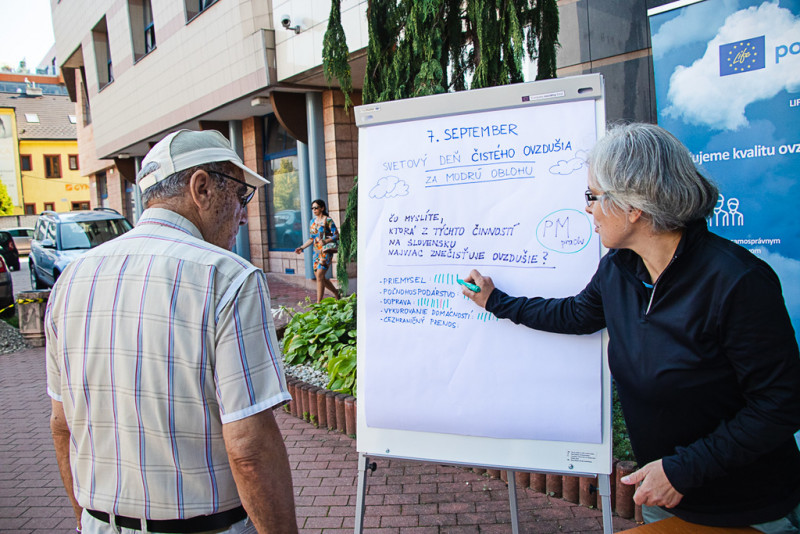 7. SEPTEMBER
SVETOVÝ DEŇ ČISTÉHO OVZDUŠIA
ZA MODRÚ OBLOHU
ČO MYSLÍTE,
KTORÁ Z TÝCHTO ČINNOSTÍ
NA SLOVENSKU
NAJVIAC ZNEČISŤUJE OVZDUŠIE?
PM
- PRIEMYSEL
- POĽNOHOSPODÁRSTVO
- DOPRAVA
- VYKUROVANIE DOMÁCNOSTÍ
- CEZHRANIČNÝ PRENOS
Life
po
LIF
ujeme kvalitu ovz
amosprávnym